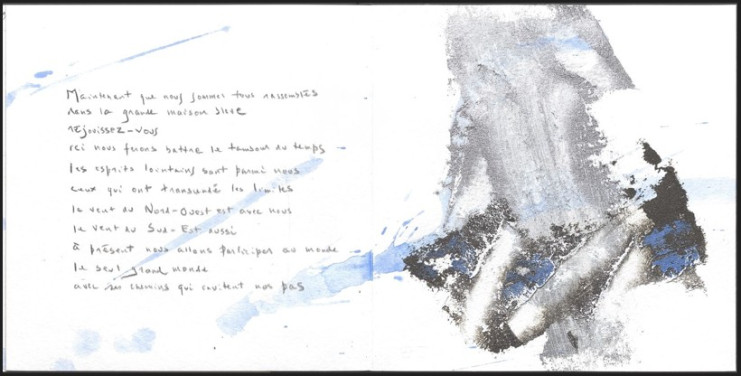 Maintenant que nous sommes tous rassemblés
dans la grande maison bleue
réjouissez-vous
ici nous ferons battre le tambour du temps
les esprits lointains sont parmi nous
ceux qui ont transcendé les limites
le vent du Nord-Ouest est avec nous
le vent du Sud-Est aussi
à présent nous allons participer au monde
le seul grand monde
avec ses chemins qui invitent nos pas